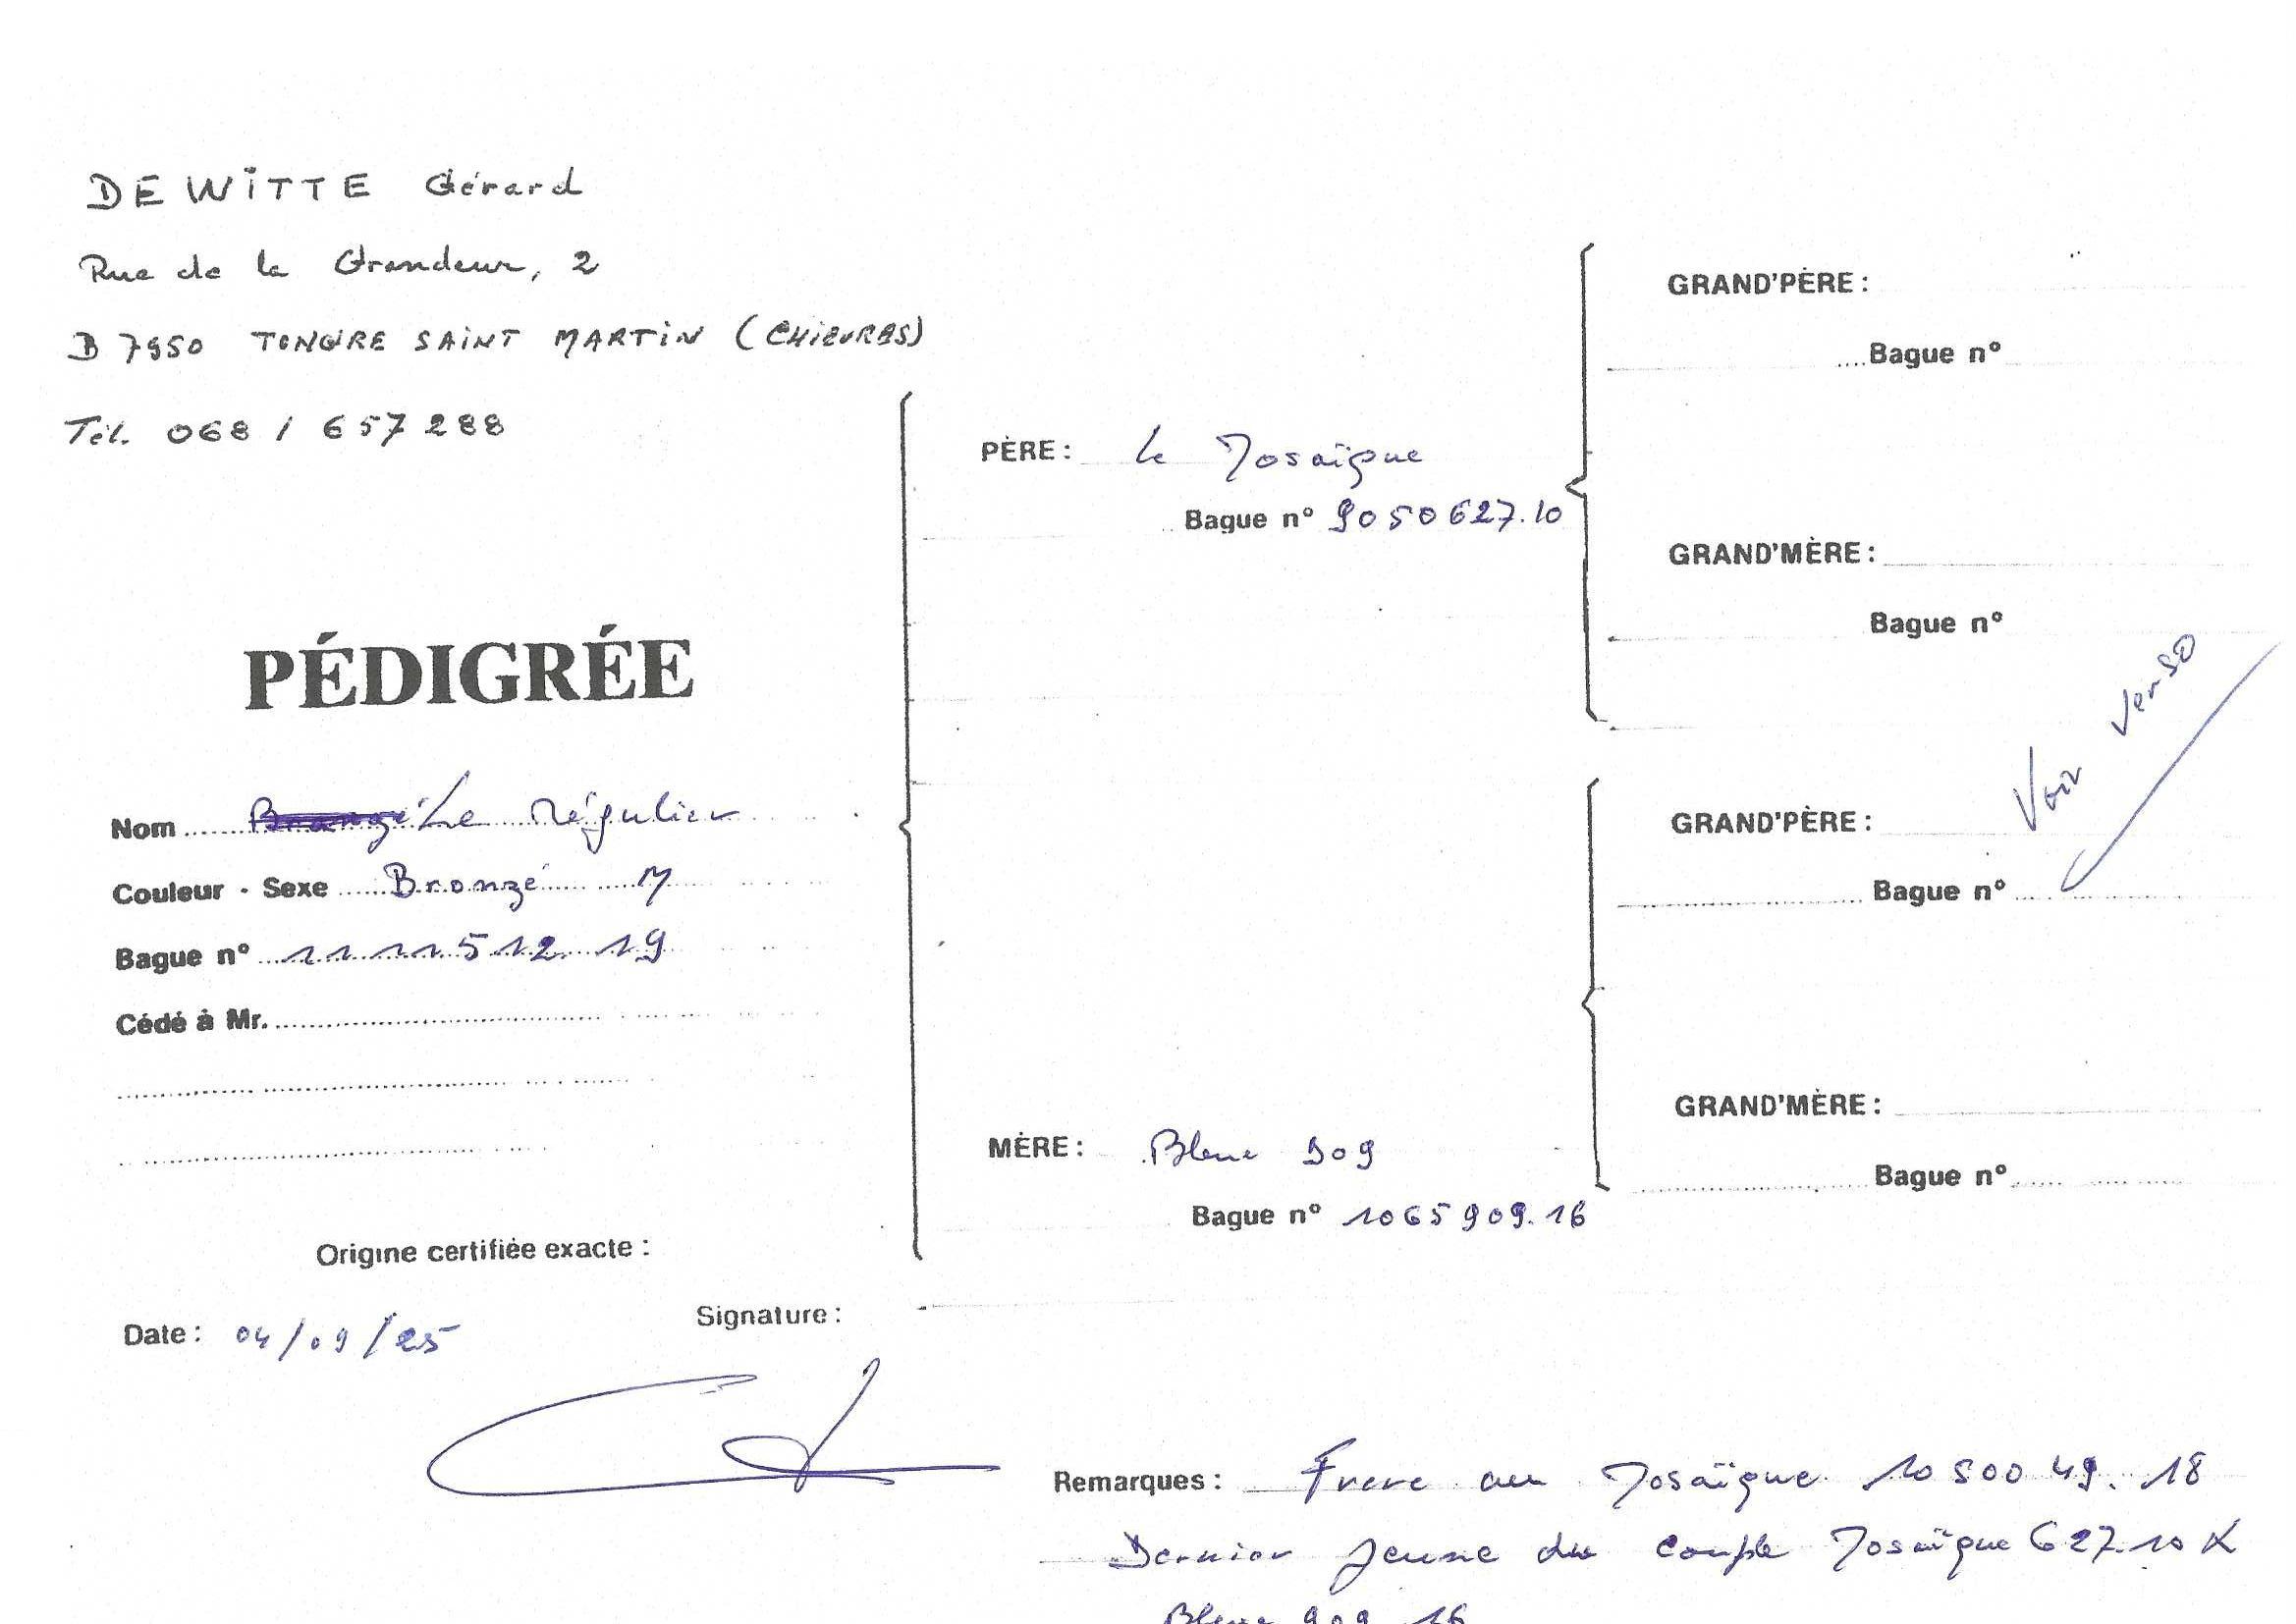 DE WITTE Gérard
Rue de la Grandeur, 2
B 7950 TONGRE SAINT MARTIN (CHIEVRES)
Tél. 068 / 657288
PÉDIGRÉE
Nom Bronzé Le Régulier
Couleur - Sexe Bronzé M
Bague n° 1111512.19
Cédé à Mr.
Origine certifiée exacte :
Date : 04/09/25
Signature :
PÈRE : Le Mosaïque
Bague n° 9050627.10
MÈRE : Bleue 909
Bague n° 1065909.16
GRAND'PÈRE :
Bague n°
GRAND'MÈRE :
Bague n°
Voir Verso
GRAND'PÈRE :
Bague n°
GRAND'MÈRE :
Bague n°
Remarques : Frere au Mosaïque 1050049.18
Dernier jeune du couple Mosaïque 627.10 X
Bleue 909.16